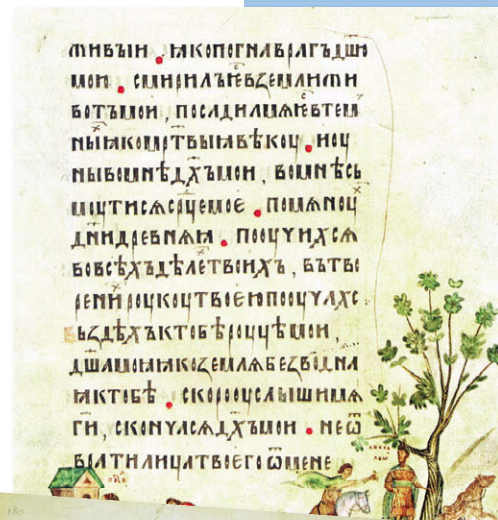 живыи . ꙗкопогнаврагъдш҃ю
мои . смирилъѥвземлижи
вотъмои , посадилмѧѥвтем
ныꙗкомр҃твыꙗвѣкоу . иоу
нывомнѣдх҃ъмои , вомнѣсь
моутисѧср҃цемоє . помѧноу
дн҃идревнѧꙗ . пооучихсѧ
вовсѣхъдѣлетвоихъ , вътво
ренироукоутвоєюпооучахс
възⷣѣхъктобѣроуцѣмои ,
дш҃амоꙗꙗкоземлѧбезводна
ꙗктобѣ . скорооуслышимѧ
ги҃ , скончасѧдх҃ъмои . неѿ
вратилицатвоегоѿмене
180